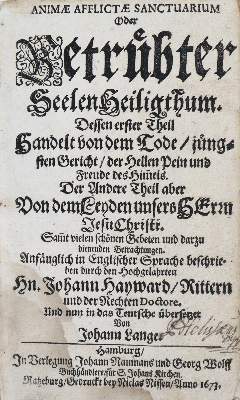 ANIMÆ AFFLICTÆ SANCTUARIUM
Oder
Betrübter
Seelen Heiligthum.
Dessen erster Theil
Handelt von dem Tode / jüng-
sten Gericht / der Hellen Pein und
Freude des Himels.
Der Andere Theil aber
Von dem Leyden unsers HErrn
Jesu Christi.
Samt vielen schönen Gebeten und darzu
dienenden Betrachtungen.
Anfänglich in Englischer Sprache beschrie-
ben durch den Hochgelahrten
Hn. Johann Hayward / Rittern
und der Rechten Doctore.
Und nun in das Teutsche übersetzet
Von
Johann Langen
Hamburg /
In Verlegung Johann Naumans und Georg Wolff
Buchhändlers für S. Johans Kirchen.
Ratzeburg / Gedruckt bey Niclas Nissen / Anno 1673.